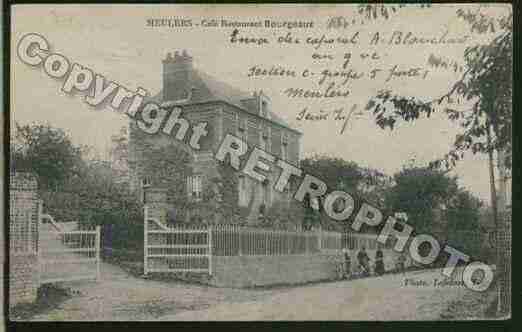 MEULERS - Café Restaurant Bourgeaux
Envoi du caporal A. Blanchard
au 9 ve
section C. groupe 5 poste
Meulers
Seine Inf
Copyright RETROPHOTO
Photo.